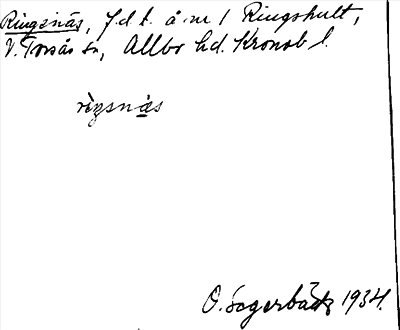 Ringsnäs, f.d.t. å nr 1 Ringshult,
V. Torsås sn, Allbo hd. Kronob l.
rìŋsnä̀s
O. Sagerbäck 1934.